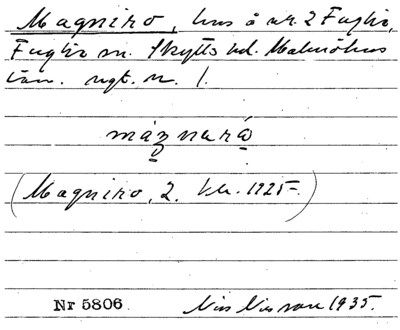 Magniro, hus å nr. 2 Fuglie,
Fuglie sn. Skytts hd. Malmöhus
län. ngt. nr. 1.
máŋnarå
(Magniro, 2. kk. 1925.)
Nr 5806.
Nils Nilsson 1935.